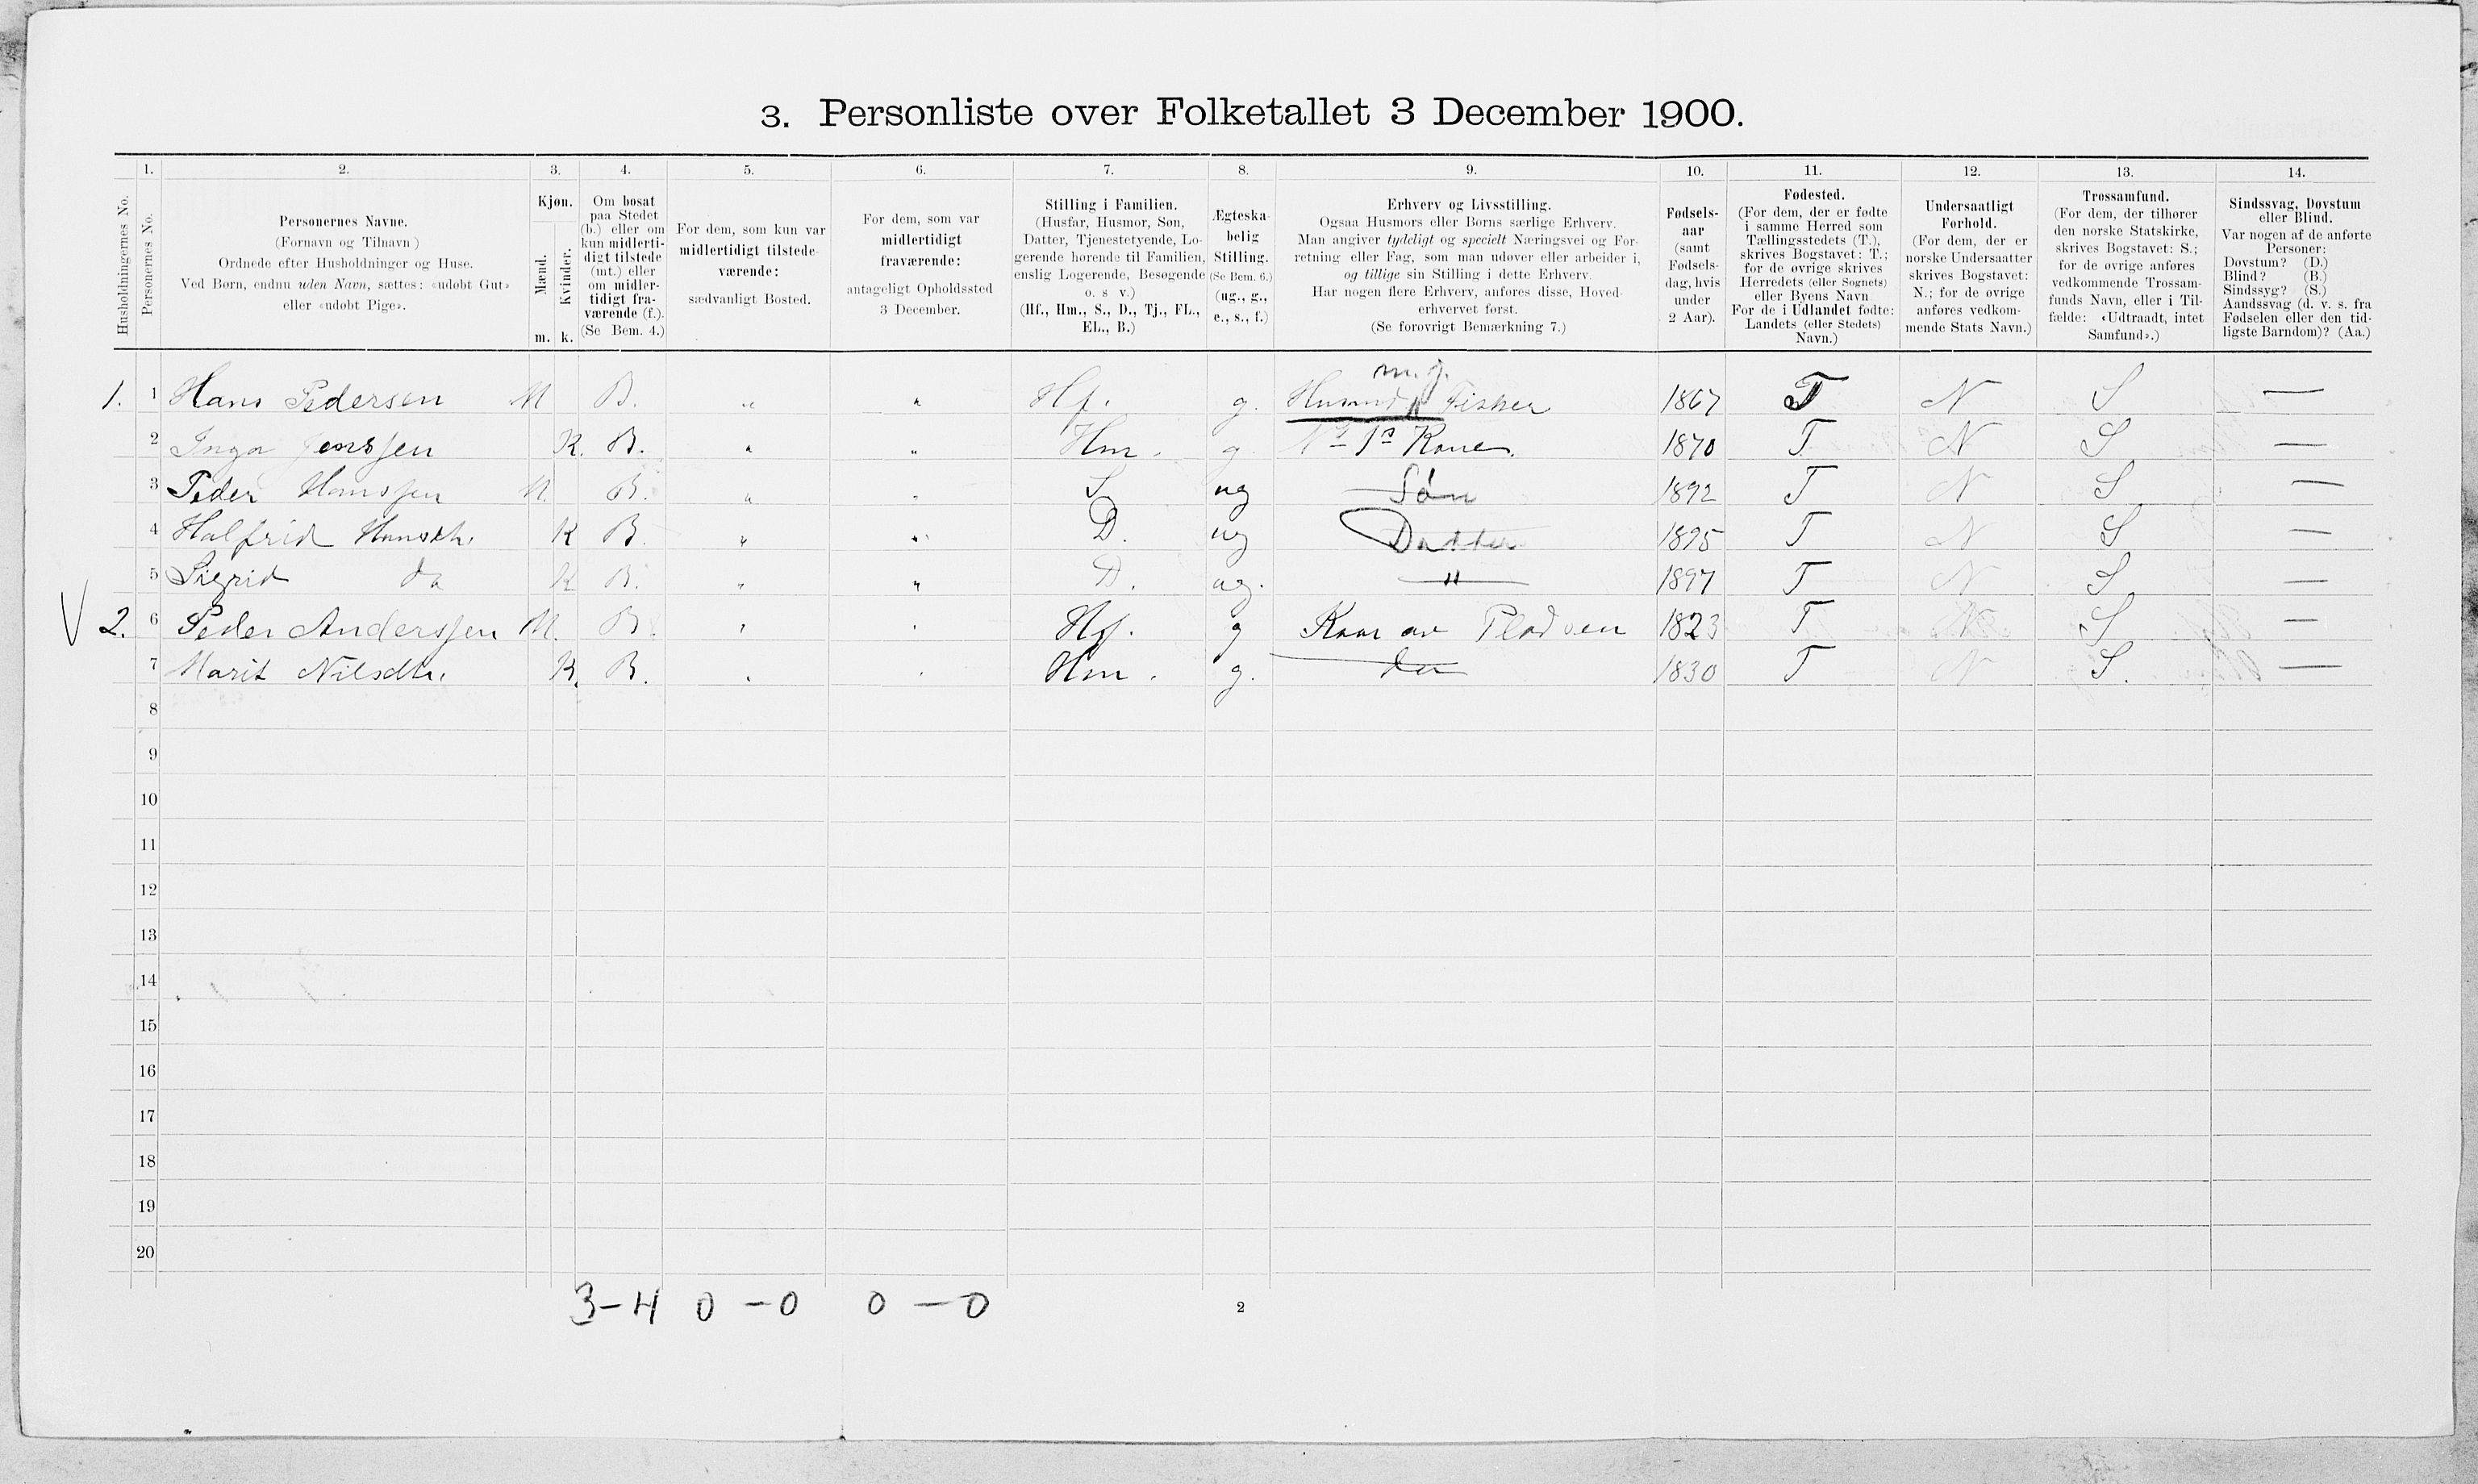 3. Personliste over Folketallet 3 December 1900.
1. 2. 3. 4. 5. 6. 7. 8. 9. 10. 11. 12. 13. 14.
Husholdningernes No.
Personernes No.
Personernes Navne.
(Fornavn og Tilnavn)
Ordnede efter Husholdninger og Huse.
Ved Børn, endnu uden Navn, sættes: «udøbt Gut»
eller «udøbt Pige».
Kjøn.
Mænd.
Kvinder.
m. k.
Om bosat
paa Stedet
(b.) eller om
kun midlerti-
digt tilstede
(mt.) eller
om midler-
tidigt fra-
værende (f.).
(Se Bem. 4.)
For dem, som kun var
midlertidigt tilstede-
værende:
sædvanligt Bosted.
For dem, som var
midlertidigt
fraværende:
antageligt Opholdssted
3 December.
Stilling i Familien.
(Husfar, Husmor, Søn,
Datter, Tjenestetyende, Lo-
gerende hørende til Familien,
enslig Logerende, Besøgende
o. s. v.)
(Hf., Hm., S., D., Tj., FL.,
EL., B.)
Ægteska-
belig
Stilling.
(Se Bem. 6.)
(ug., g.,
e., s., f.)
Erhverv og Livsstilling.
Ogsaa Husmors eller Børns særlige Erhverv.
Man angiver tydeligt og specielt Næringsvei og For-
retning eller Fag, som man udøver eller arbeider i,
og tillige sin Stilling i dette Erhverv.
Har nogen flere Erhverv, anføres disse, Hoved-
erhvervet først.
(Se forøvrigt Bemærkning 7.)
Fødsels-
aar
(samt
Fødsels-
dag, hvis
under
2 Aar).
Fødested.
(For dem, der er fødte
i samme Herred som
Tællingsstedets (T.),
skrives Bogstavet: T.;
for de øvrige skrives
Herredets (eller Sognets)
eller Byens Navn.
For de i Udlandet fødte:
Landets (eller Stedets)
Navn.)
Undersaatligt
Forhold.
(For dem, der er
norske Undersaatter
skrives Bogstavet:
N.; for de øvrige
anføres vedkom-
mende Stats Navn.)
Trossamfund.
(For dem, der tilhører
den norske Statskirke,
skrives Bogstavet: S.;
for de øvrige anføres
vedkommende Trossam-
funds Navn, eller i Til-
fælde: «Udtraadt, intet
Samfund».)
Sindssvag, Døvstum
eller Blind.
Var nogen af de anførte
Personer:
Døvstum? (D.)
Blind? (B.)
Sindssyg? (S.)
Aandssvag (d. v. s. fra
Fødselen eller den tid-
ligste Barndom)? (Aa.)
m. j.
1. 1 Hans Pedersen M B. " " Hf. g. Husmd Fisker 1867 T N S —
2 Inga Jenssen K. B. " " Hm. g. No 1s Kone. 1870 T N S —
3 Peder Hanssen M. B. " " S ug Søn 1892 T N S —
4 Halfrid Hansdt. K B. " " D. ug Datter 1895 T N S —
5 Sigrid do K B. " " D. ug. " 1897 T N S —
V 2. 6 Peder Anderssen M. B. " " Hf. g Kaar av Pladsen 1823 T N S —
7 Marit Nilsdtr. K. B. " " Hm. g. do 1830 T N S. —
8
9
10
11
12
13
14
15
16
17
18
19
20
3-4 0-0 0-0
2